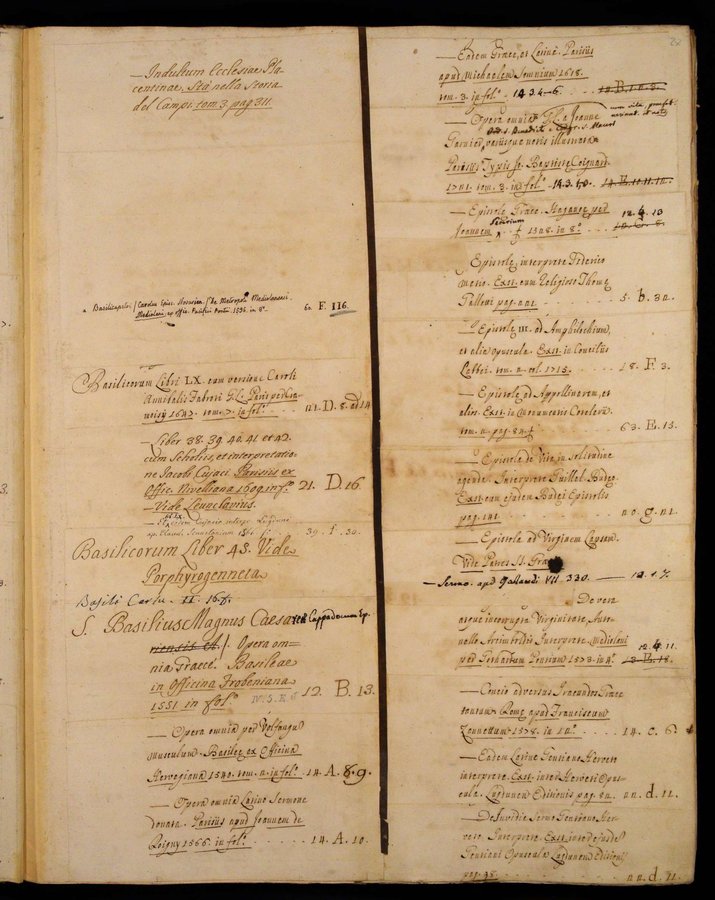 — Indultum Ecclesiae Pla-
centinae, Sta nella Storia
del Campi. tom. 3. pag 311.
Basilicapetri / Carolus Epus. Novarien. / De Metropoli Mediolanensi.
Mediolani, ex offic. Pacifici Pontii 1596. in 8º
F. 116.
Basilicorum Libri LX. cum versione Caroli
Annibalis Fabroti G.L. Paris per
1647. tom. 7. in fol.º D. 8. ad 14
— Liber 38. 39. 40. 41. et 42.
cum Scholiis, et interpretatio-
ne Jacobi Cujacii Parisiis ex
Offic. Nivelliana 1609 in fº 21. D. 16
— Vide Leunclavius.
39. f. 30.
Basilicorum Liber 45. Vide
Porphyrogenneta
Basili Carlu. II. 168.
S. Basilius Magnus Caesa
Cappadocum Ep.
Opera om-
nia Graecè. Basileae
in Officina Frobeniana
1551 in fol.º 12. B. 13.
— Opera omnia per Volfangu
musculum. Basileę ex Officina
Hervegiana 1540. tom. 2. in fol.º 14. A. 8. 9.
— Opera omnia Latino Sermone
donata. Parisiis apud Joannem de
Roigny 1566. in fol.º 14. A. 10.
— Eadem Graece, et Latinè. Parisiis
apud Michaelem Somnium 1618.
tom. 3. in fol.º 14 3. 4-6.
— Opera omnia G.L. a Joanne
Garnier
Ord. S. Benedicti e Congr. S. Mauri
variisque notis illustrata
Parisiis Typis Jo. Baptiste Coignard
1721. tom. 3. in fol.º
— Epistole Graec. Haganoę per
Joannem Secerium 1528. in 8º
12. 4. 13
— Epistole, interprete Federico
metio. Exst. cum Religioso Thomę
Galleni pag. 221. 5. b. 32.
— Epistole III. ad Amphilochium,
et alia opuscula. Exst. in Conciliis
Labbei. tom. 2. col. 1715. 18. F. 3.
— Epistole ad Appollinarem, et
alios. Exst. in Monumentis Cotelerii.
tom. 2. pag. 84. 63. E. 13.
— Epistola de Vita in solitudine
agenda. Interprete Guillel. Budęo.
Exst. cum ejusdem Budęi Epistolis
pag. 141.
— Epistola ad Virginem Lapsam.
Vide Patres SS. Graec
— Sermo. apud Gallandi VII. 330. — 12. 1. 7.
— De vera
atque incorrupta Virginitate, Anto-
nello Arcimboldio Interprete. Mediolani
per Pontium 1573. in 4º
12. 4. 11.
— Concio adversus Iracundos Graec
Romę apud Franciscum
Zannettum 1578. in 12º 14. c. 6.
— Eadem Latine Gentiano Herveto
interprete. Exst. inter Herveti Opus-
cula, Lugdunen Editionis pag. 82. 22. d. 11.
— De Invidia Sermo Gentiano Her-
veto Interprete. Exst. inter ejusdẽ
Gentiani Opuscula Lugdunen Editionis
pag. 38. 22. d. 11.